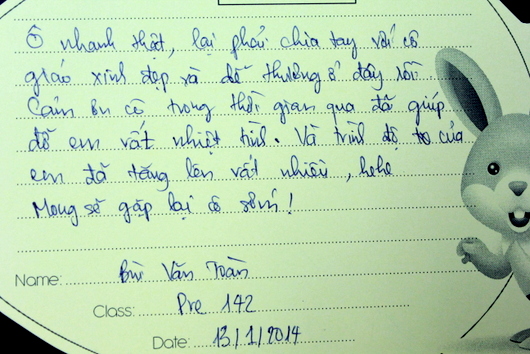 Ô nhanh thật, lại phải chia tay với cô
giáo xinh đẹp và dễ thương ở đây rồi.
Cảm ơn cô trong thời gian qua đã giúp
đỡ em rất nhiệt tình. Và trình độ của
em đã tăng lên rất nhiều, hehe
Mong sẽ gặp lại cô sớm!
Name: Bùi Văn Toàn
Class: Pre 142
Date: 13/1/2014